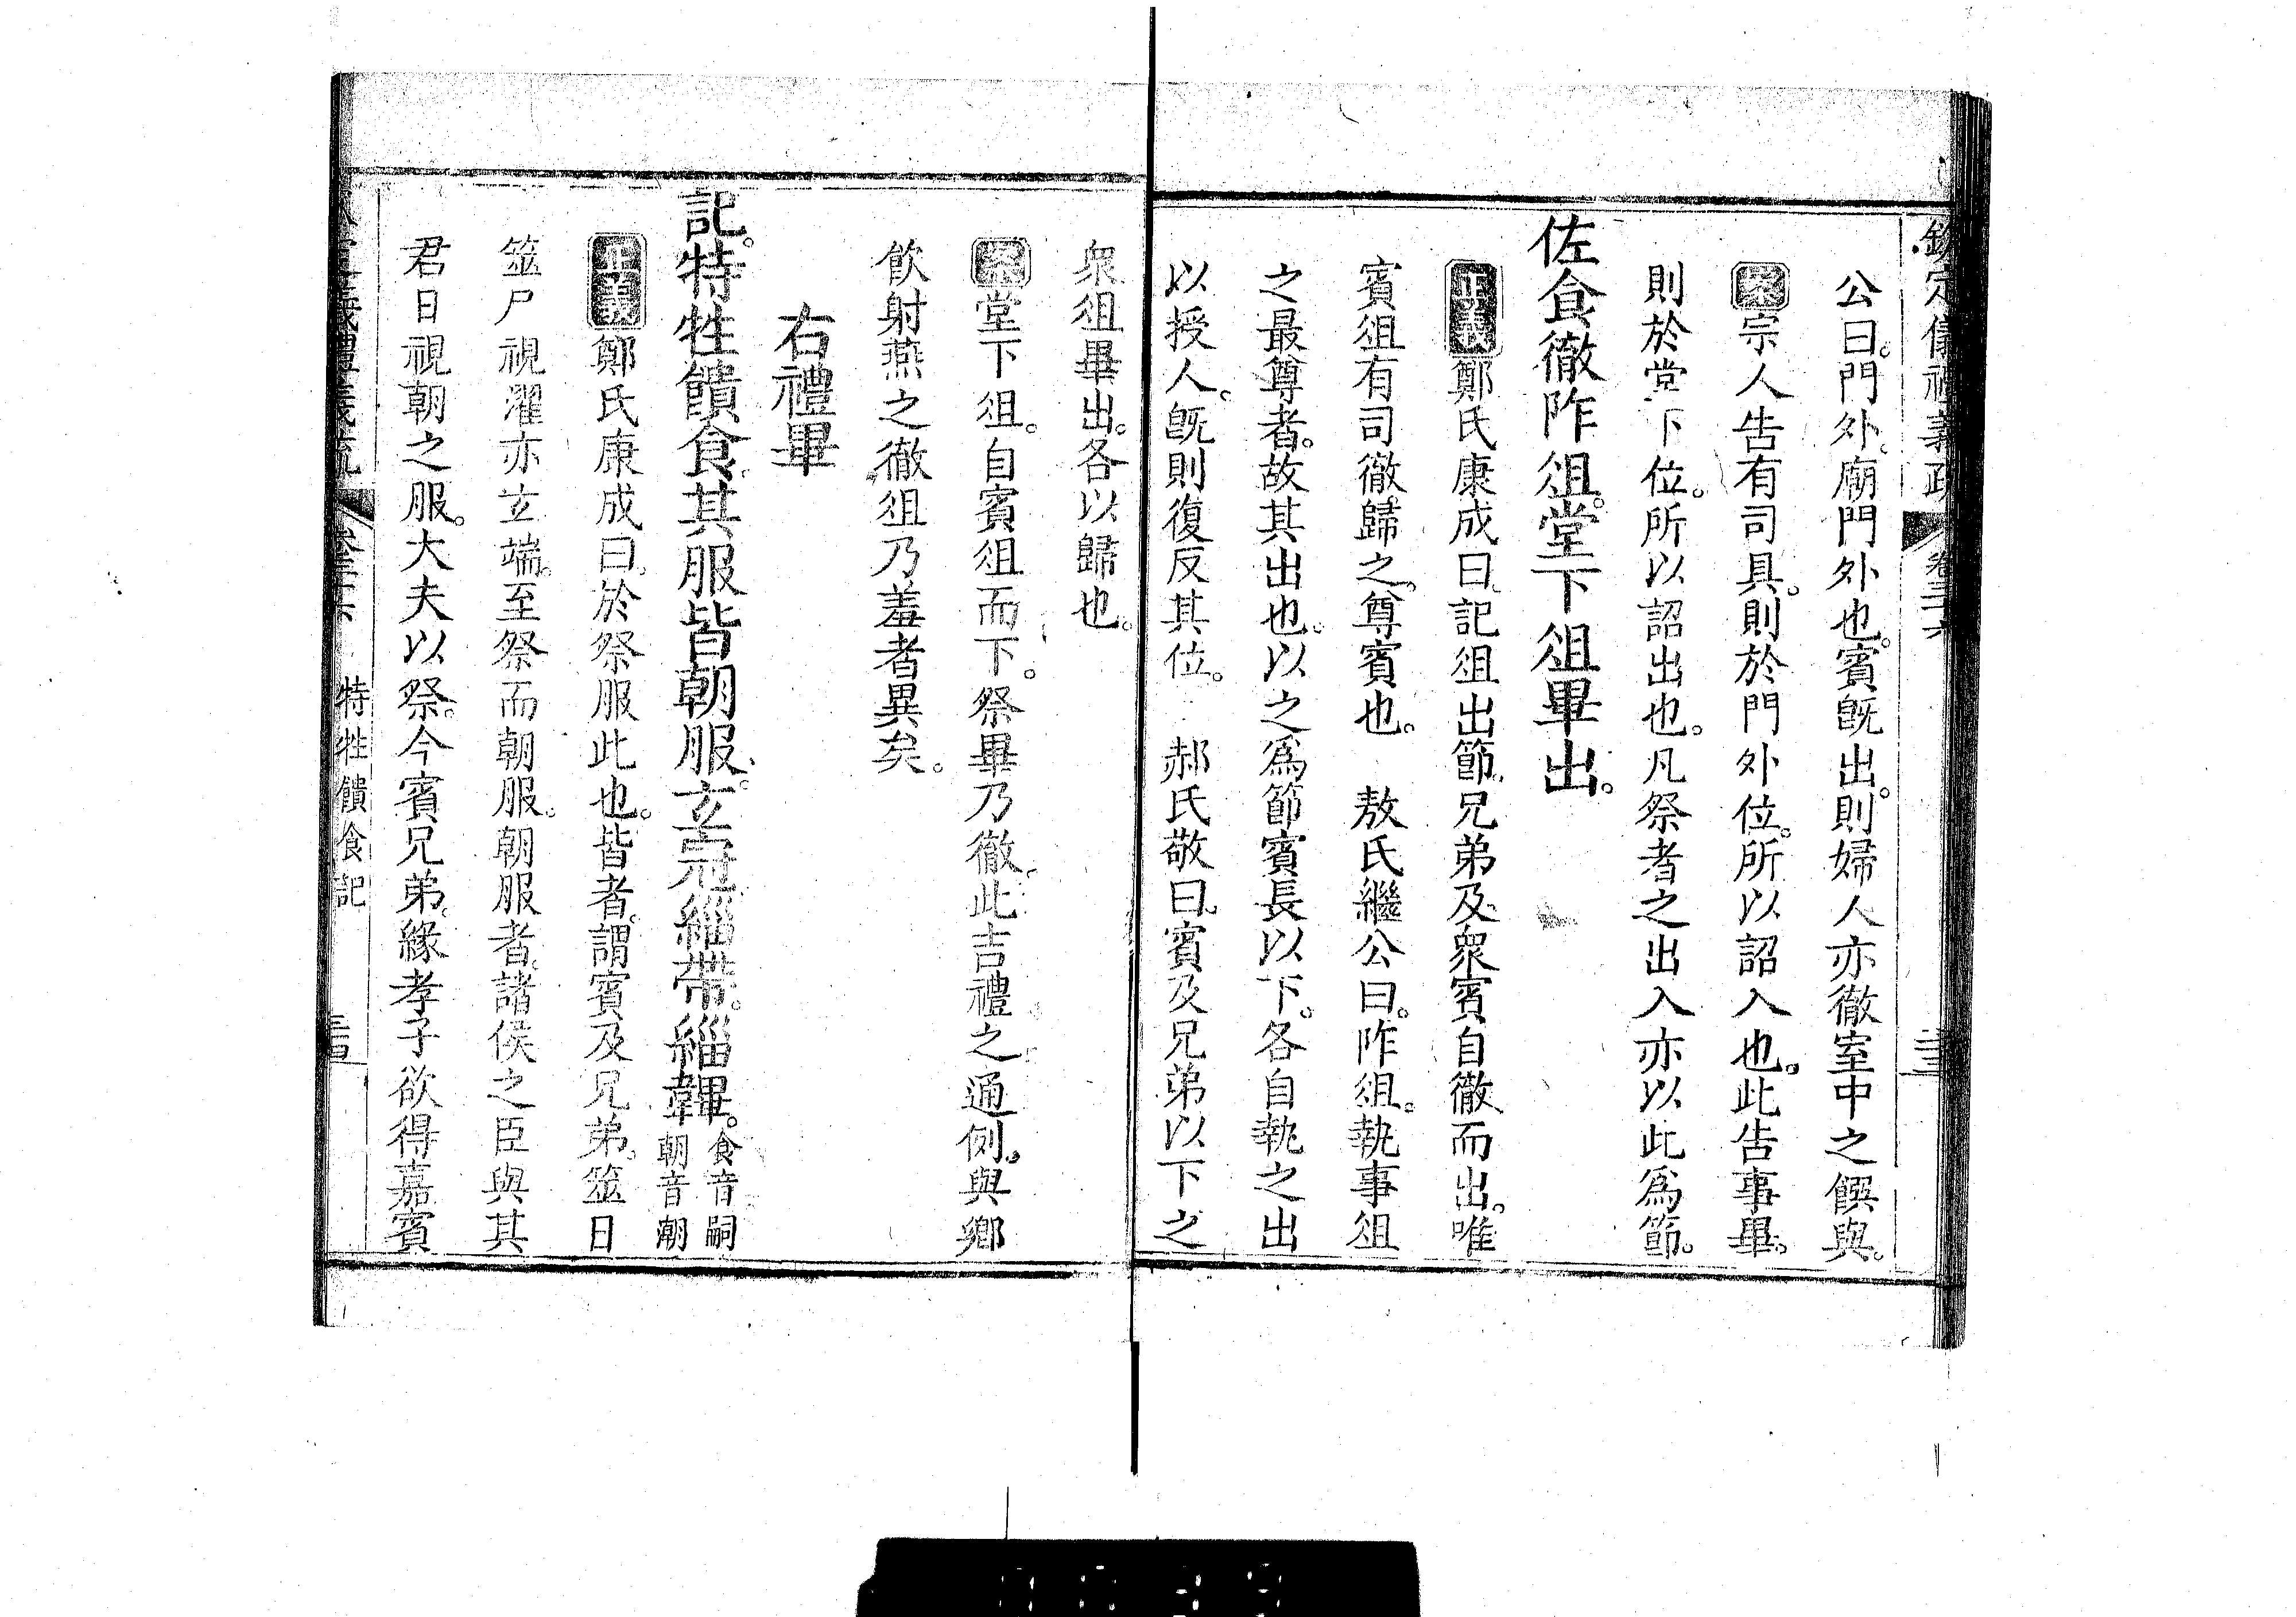 欽定儀禮義疏 卷三十六 三三
公曰。門外。廟門外也。賓旣出。則婦人亦徹室中之饌與。
案宗人告有司具。則於門外位。所以詔入也。此告事畢。
則於堂下位。所以詔出也。凡祭者之出入亦以此爲節。
佐食徹阼俎。堂下俎畢出。
正義鄭氏康成曰。記俎出節。兄弟及衆賓自徹而出。唯
賓俎有司徹歸之。尊賓也。 敖氏繼公曰。阼俎。執事俎
之最尊者。故其出也。以之爲節賓長以下。各自執之出
以授人。旣則復反其位。 郝氏敬曰。賓及兄弟以下之
衆俎畢出。各以歸也。
案堂下俎。自賓俎而下。祭畢乃徹。此吉禮之通例。與鄉
飮射燕之徹俎乃羞者異矣。
右禮畢
記。特牲饋食。其服皆朝服。玄冠。緇帶。緇韠。食音嗣朝音潮
正義鄭氏康成曰。於祭服此也。皆者。謂賓及兄弟。筮日
筮尸視濯亦玄端。至祭而朝服。朝服者。諸侯之臣與其
君日視朝之服。大夫以祭。今賓兄弟。緣孝子欲得嘉賓
欽定儀禮義疏 卷三十六 特牲饋食記 三四